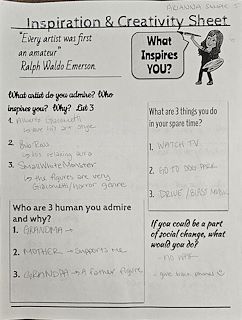 ARIANNA
Inspiration & Creativity Sheet
"Every artist was first
an amateur"
Ralph Waldo Emerson.
What
Inspires
YOU?
What artist do you admire? Who
inspires you? Why? List 3
1. Alberto Giacometti
↳ his art style
2. Bob Ross
↳ his relaxing aura
3. SmallWhiteMonster
↳ the figures are very
Giacometti/horror genre
What are 3 things you do
in your spare time?
1. WATCH TV
2. GO TO DOG PARK
3. DRIVE / BLASS MUSIC
Who are 3 human you admire
and why?
1. GRANDMA →
2. MOTHER → Supports me
3. GRANDPA → A father figure
If you could be a part
of social change, what
would you do?
- no war
- give back